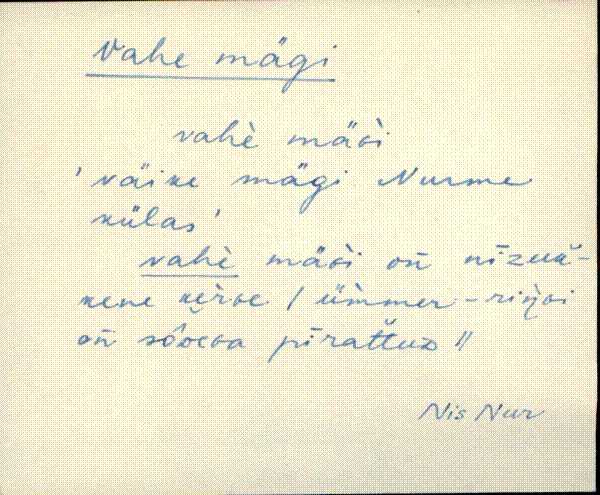 Vahe mägi
vahè mäɢì
'väike mägi Nurme
külas'
vahè mäɢì oñ nīzuǩ-
kene kèrɢe / ümmer-riŋɢi
on sôoɢa pīraťtuᴅ //
Nis Nur